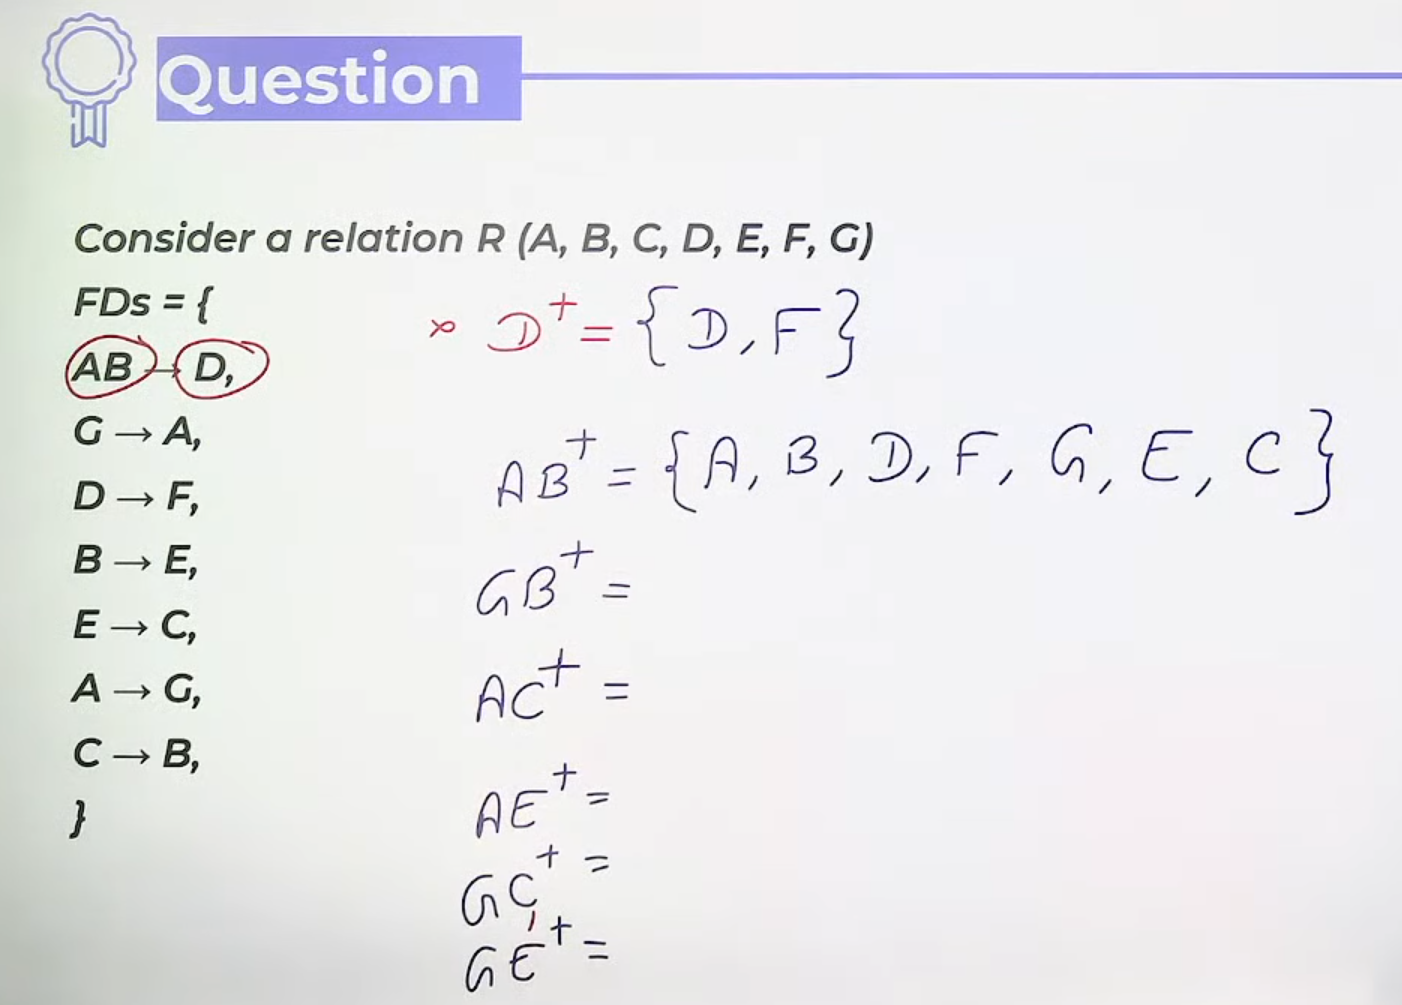 Question
Consider a relation R (A, B, C, D, E, F, G)
FDs = {
AB → D,
G → A,
D → F,
B → E,
E → C,
A → G,
C → B,
}
D⁺ = {D, F}
AB⁺ = {A, B, D, F, G, E, C}
GB⁺ =
AC⁺ =
AE⁺ =
GC⁺ =
GE⁺ =